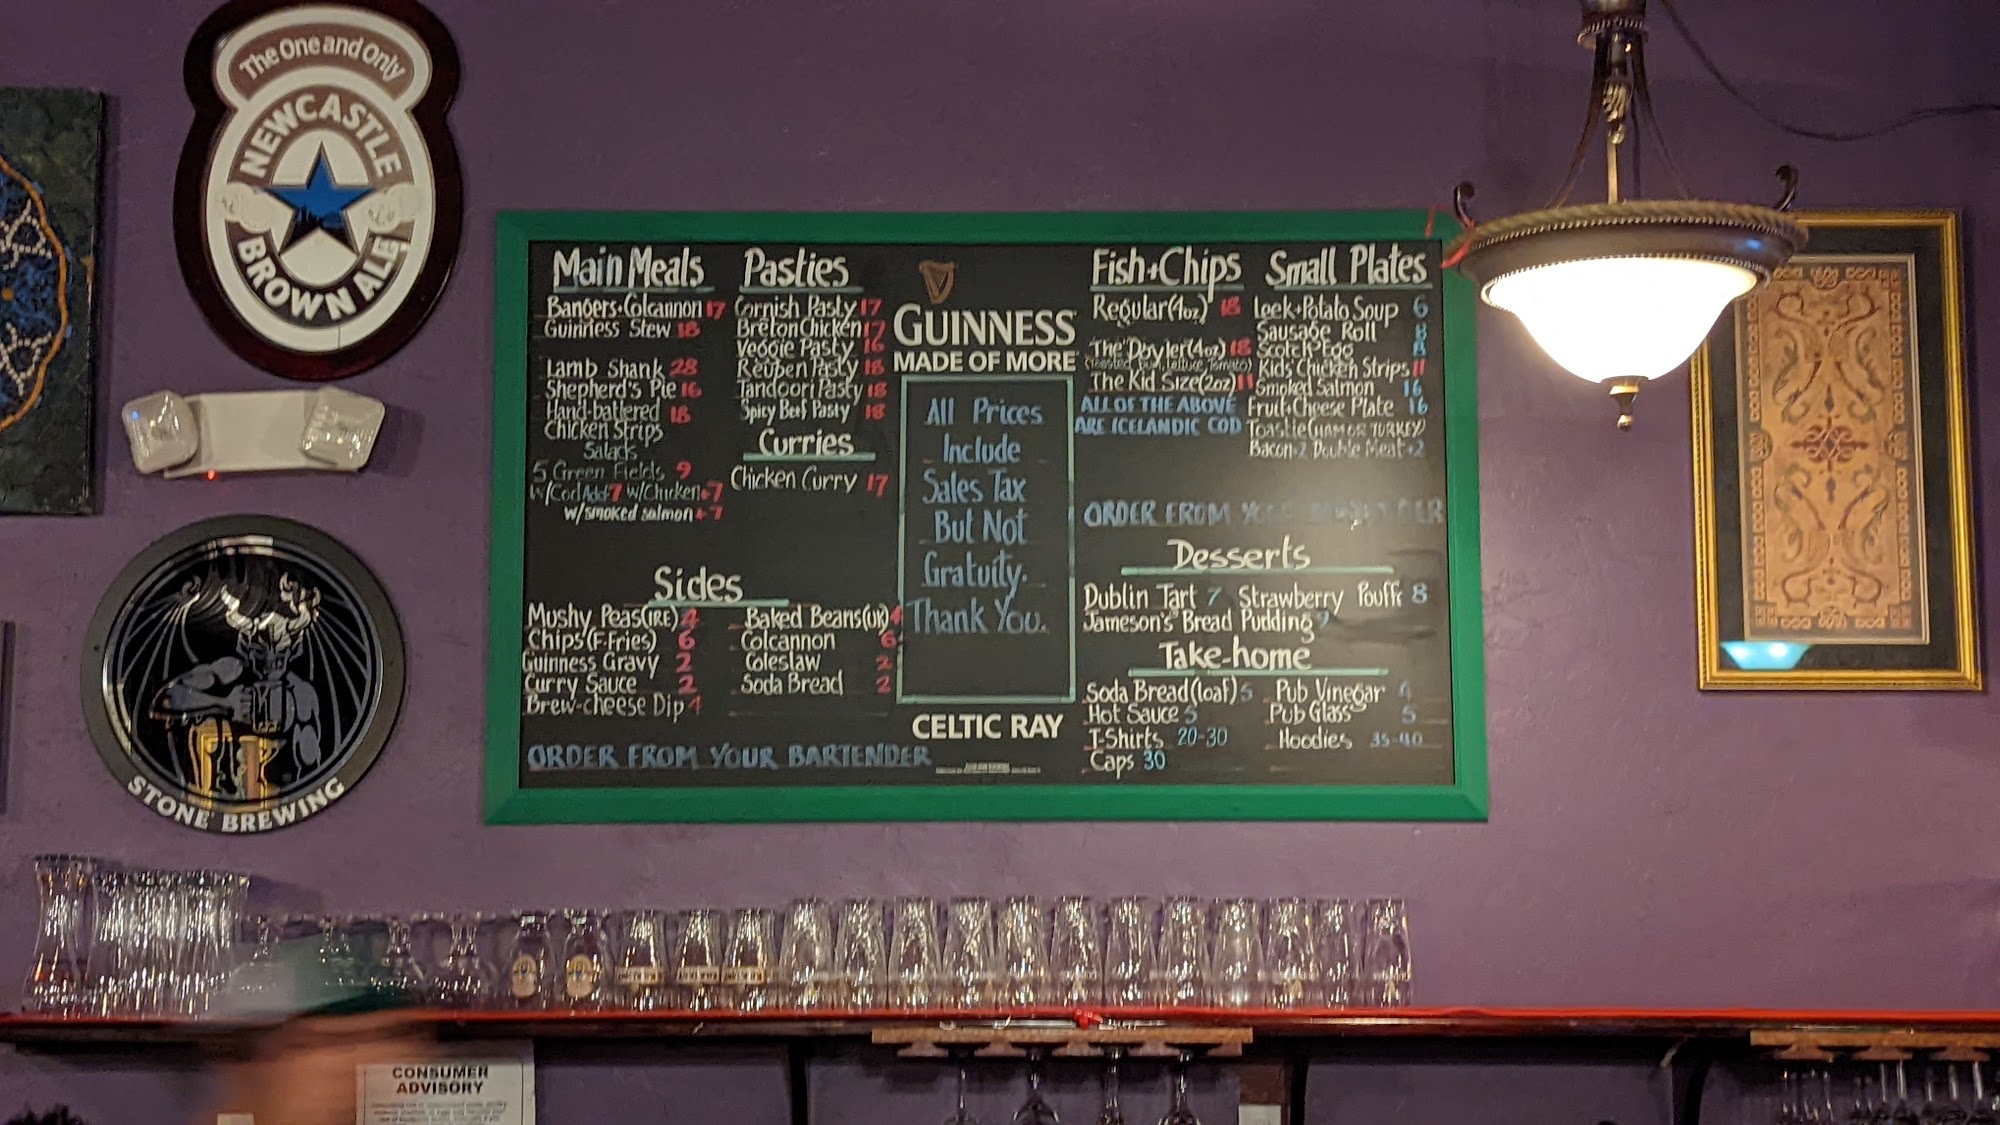 The One and Only
NEWCASTLE
BROWN ALE
STONE BREWING
Main Meals
Bangers+Colcannon 17
Guinness Stew 18
Lamb Shank 28
Shepherd's Pie 16
Hand-battered 18
Chicken Strips
Salads
5 Green Fields 9
w/Cod Add 7 w/Chicken+7
w/smoked salmon + 7
Pasties
Cornish Pasty 17
Breton Chicken 17
Veggie Pasty 16
Reuben Pasty 18
Tandoori Pasty 18
Spicy Beef Pasty 18
Curries
Chicken Curry 17
Sides
Mushy Peas(IRE) 4
Chips(F-Fries) 6
Guinness Gravy 2
Curry Sauce 2
Brew-cheese Dip 4
Baked Beans(UK) 4
Colcannon 6
Coleslaw 2
Soda Bread 2
ORDER FROM YOUR BARTENDER
GUINNESS
MADE OF MORE
All Prices
Include
Sales Tax
But Not
Gratuity.
Thank You.
CELTIC RAY
Fish+Chips
Regular(4oz) 18
The "Doyler(4oz) 18
(Toasted Bun, Lettuce, Tomato)
The Kid Size(2oz) 11
ALL OF THE ABOVE
ARE ICELANDIC COD
Small Plates
Leek+Potato Soup 6
Sausage Roll 8
Scotch Egg 8
Kids Chicken Strips 11
Smoked Salmon 16
Fruit+Cheese Plate 16
Toastie (HAM OR TURKEY)
Bacon+2 Double Meat+2
ORDER FROM
Desserts
Dublin Tart 7 Strawberry Pouffe 8
Jameson's Bread Pudding 9
Take-home
Soda Bread(loaf) 5 Pub Vinegar 4
Hot Sauce 5 Pub Glass 5
T-Shirts 20-30 Hoodies 35-40
Caps 30
CONSUMER
ADVISORY